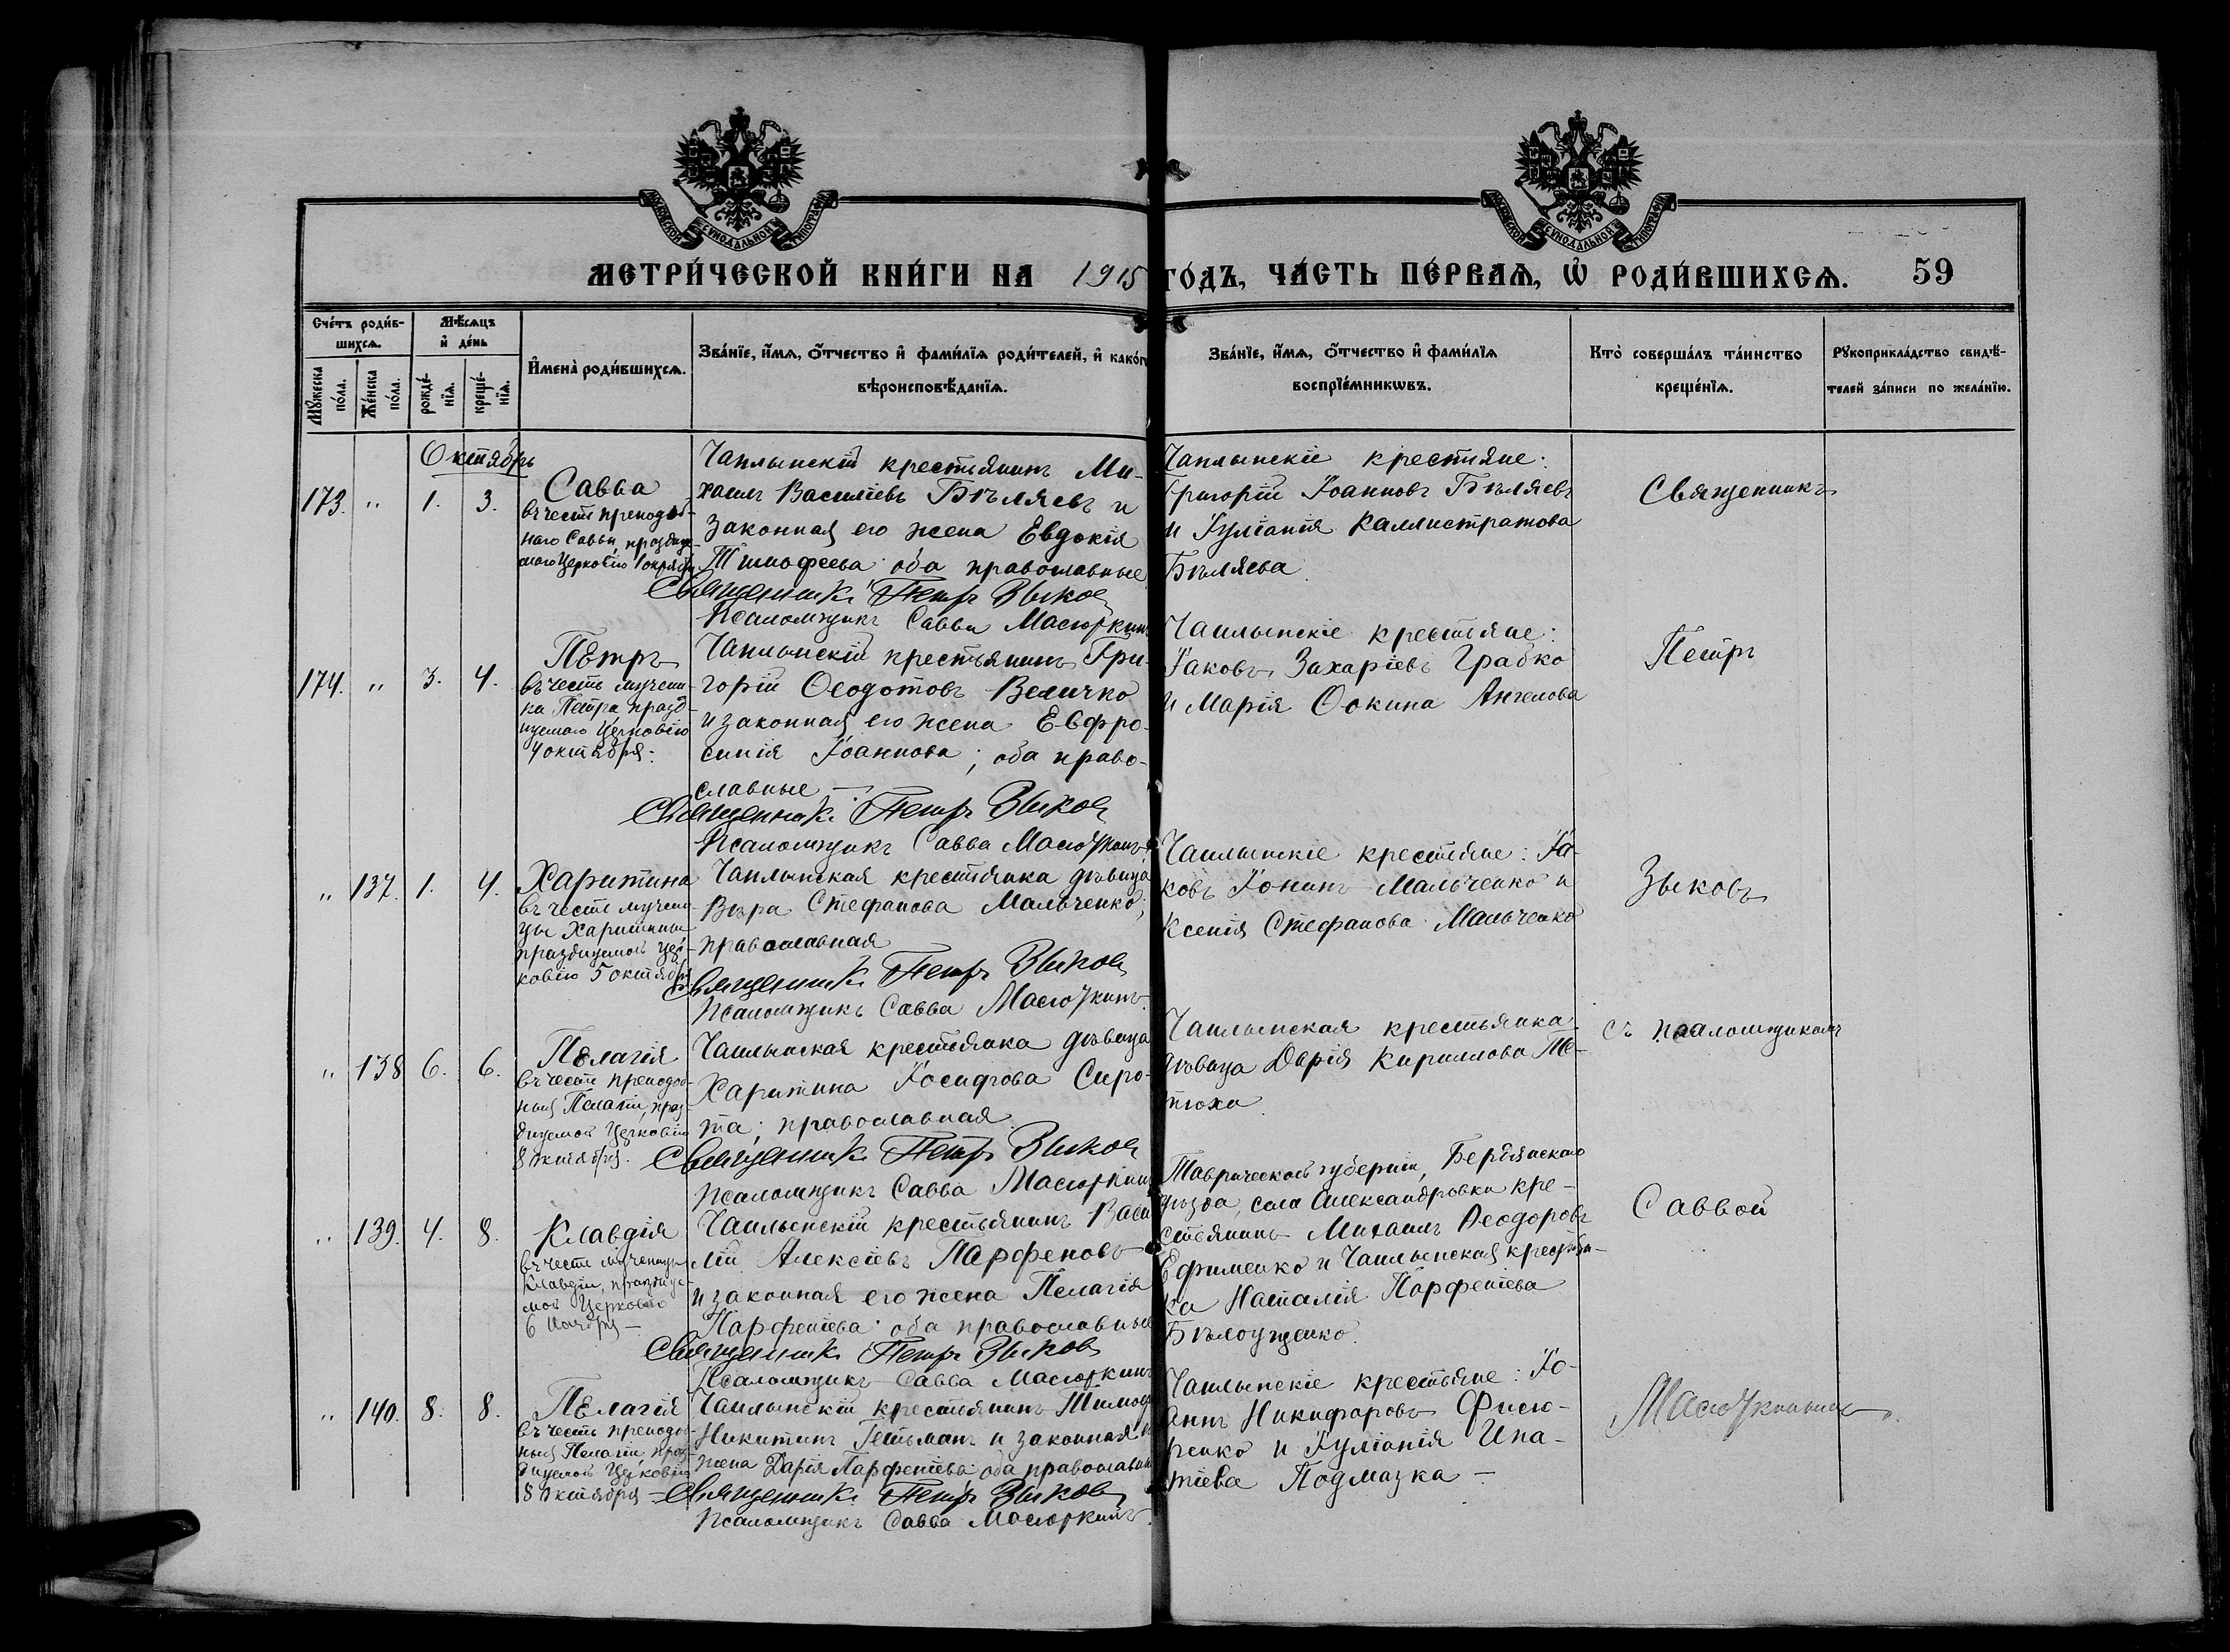 МОСКОВСКОЙ СѴНОДАЛЬНОЙ ТИПОГРАФІИ
МОСКОВСКОЙ СѴНОДАЛЬНОЙ ТИПОГРАФІИ
МЕТРИ́ЧЕСКОЙ КНИ́ГИ НА 1915 ГО́ДЪ, ЧА́СТЬ ПЕ́РВАѦ, Ѡ҆ РОДИ́ВШИХСѦ. 59
Сче́тъ роди́в-
шихсѧ.
Мꙋ́жеска по́ла.
Же́нска по́ла.
Мѣ́сѧцъ
и҆ де́нь
рожде́-
нїѧ.
креще́-
нїѧ.
И҆мена̀ роди́вшихсѧ.
Зва́нїе, и҆́мѧ, ѻ҆́тчество и҆ фами́лїѧ роди́телей, и҆ како́гѡ
вѣроисповѣ́данїѧ.
Зва́нїе, и҆́мѧ, ѻ҆́тчество и҆ фами́лїѧ
воспрїе́мникѡвъ.
Кто̀ соверша́лъ та́инство
креще́нїѧ.
Рꙋкоприкла́дство свидѣ́-
телей за́писи по жела́нїю.
Октябрь
173. " 1. 3.
Савва
въ честь преподоб-
наго Саввы, праздну-
емаго Церковію 1 октября
Чаплынскій крестьянинъ Ми-
хаилъ Василіевъ Бѣляевъ и
законная его жена Евдокія
Тимофеева; оба православные
Священникъ Петръ Зыковъ
Псаломщикъ Савва Масюткинъ
Чаплынскіе крестьяне:
Григорій Іоанновъ Бѣляевъ
и Іуліанія Каллистратова
Бѣляева.
Священникъ
174. " 3. 4.
Петръ
въ честь мучени-
ка Петра празд-
нуемаго Церковію
4 октября.
Чаплынскій крестьянинъ Гри-
горій Ѳеодотовъ Величко
и законная его жена Евфро-
синія Іоаннова; оба право-
славные —
Священникъ Петръ Зыковъ
Псаломщикъ Савва Масюткинъ
Чаплынскіе крестьяне:
Іаковъ Захаріевъ Грабко
и Марія Ѳокина Ангелова
Петръ
" 137. 1. 4.
Харитина
въ честь мучени-
цы Харитины
празднуемой Цер-
ковію 5 октября
Чаплынская крестьянка дѣвица
Вѣра Стефанова Мальченко;
православная
Священникъ Петръ Зыковъ
Псаломщикъ Савва Масюткинъ
Чаплынскіе крестьяне: Іа-
ковъ Іонинъ Мальченко и
Ксенія Стефанова Мальченко
Зыковъ
" 138 6. 6.
Пелагія
въ честь преподоб-
ныя Пелагіи, праз-
днуемой Церковію
8 октября.
Чаплынская крестьянка дѣвица
Харитина Іосифова Сиро-
та; православная.
Священникъ Петръ Зыковъ
Псаломщикъ Савва Масюткинъ
Чаплынская крестьянка
дѣвица Дарія Кириллова Те-
тюха.
съ псаломщикомъ
" 139. 4. 8.
Клавдія
въ честь мученицы
Клавдіи, празднуе-
мой Церковію
6 Ноября —
Чаплынскій крестьянинъ Васи
лій Алексіевъ Парфеновъ
и законная его жена Пелагія
Парфеніева; оба православные
Священникъ Петръ Зыковъ
Псаломщикъ Савва Масюткинъ
Таврической губерніи, Бердянскаго
уѣзда, села Александровки кре-
стьянинъ Михаилъ Ѳеодоровъ
Ефименко и Чаплынская крестьян-
ка Наталія Парфеніева
Бѣлоущенко.
Саввой
" 140. 8. 8.
Пелагія
въ честь преподоб-
ныя Пелагіи, праз-
днуемой Церковію
8 октября —
Чаплынскій крестьянинъ Тимоѳ
Никитинъ Гетьманъ и законная
жена Дарія Парфеніева; оба православн
Священникъ Петръ Зыковъ
Псаломщикъ Савва Масюткинъ.
Чаплынскіе крестьяне: Іо-
аннъ Никифоровъ Фисю-
ренко и Іуліанія Ипа-
тіева Подмазка —
Масюткинымъ.